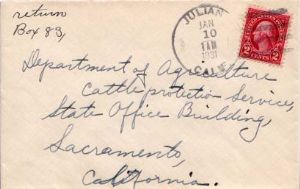 return
Box 83,
JULIAN
JAN
10
1931
CALIF.
2 CENTS 2
Department of Agriculture
Cattle protection Service,
State Office Building,
Sacramento,
California.